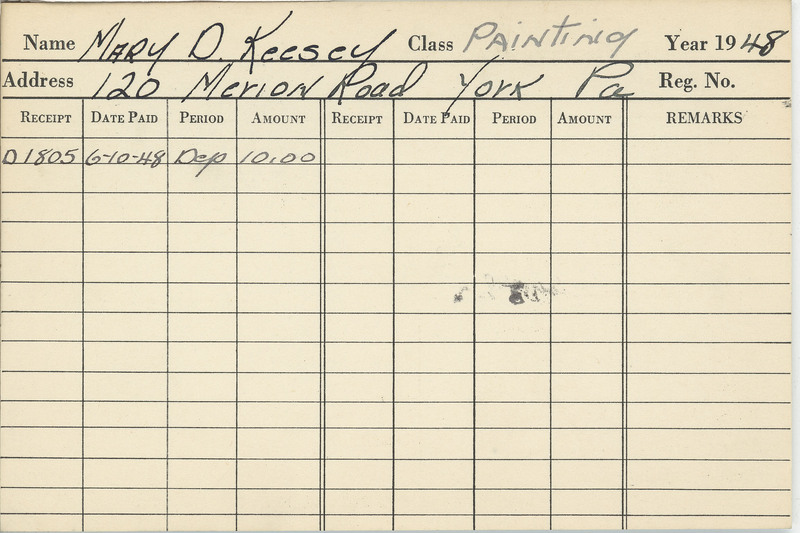 Name Mary D. Keesey Class Painting Year 1948
Address 120 Merion Road York Pa Reg. No.
Receipt Date Paid Period Amount Receipt Date Paid Period Amount REMARKS
D1805 6-10-48 Dep 10.00